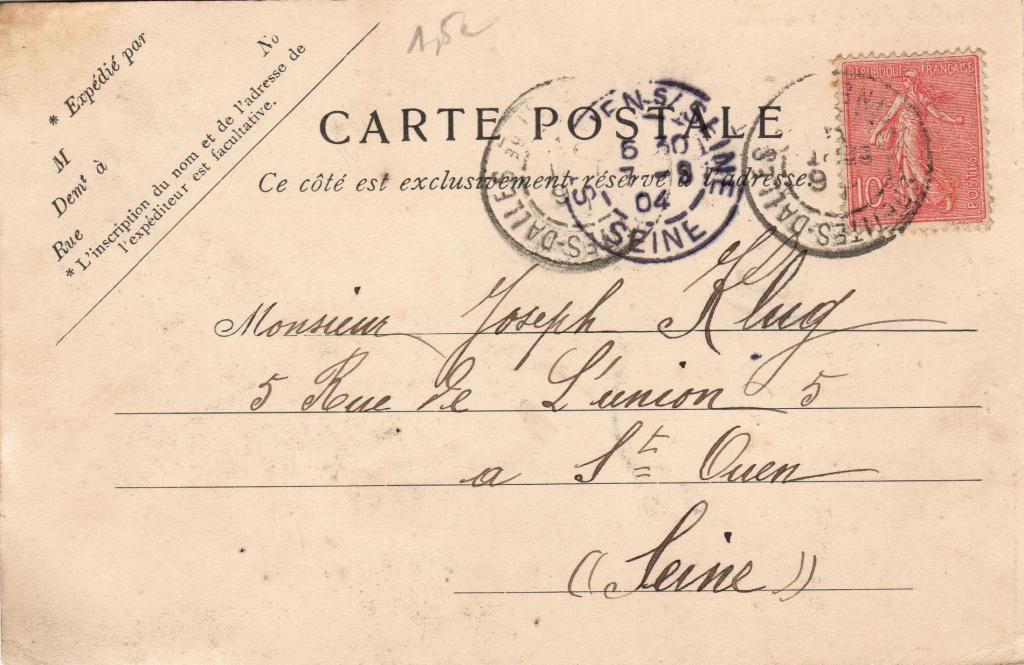 1,5e
* Expédié par
No
M
Demt à
Rue
* L'inscription du nom et de l'adresse de
l'expéditeur est facultative.
CARTE POSTALE
Ce côté est exclusivement réservé à l'adresse.
REPUBLIQUE FRANÇAISE
10
POSTES
ES-DALLES
EN-S/-SEINE
6 30
04
SEINE
TES-DALLES
Monsieur Joseph Klug
5 Rue de L'union 5
a St Ouen
((Seine))